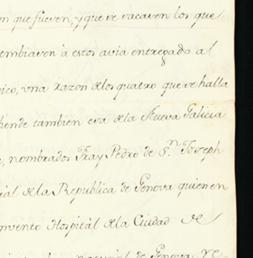 m que fueren, y que ve vacaven los que
embiaren à estos avia entregado al
pico, vna razon delos quatro que ve halla
hende tambien era de la Nueva Galicia
, nombrador Fray Pedro de S.n Joseph
ial de la Republica de Genova quien en
nvento Hospital de la Ciudad de
de Genova,